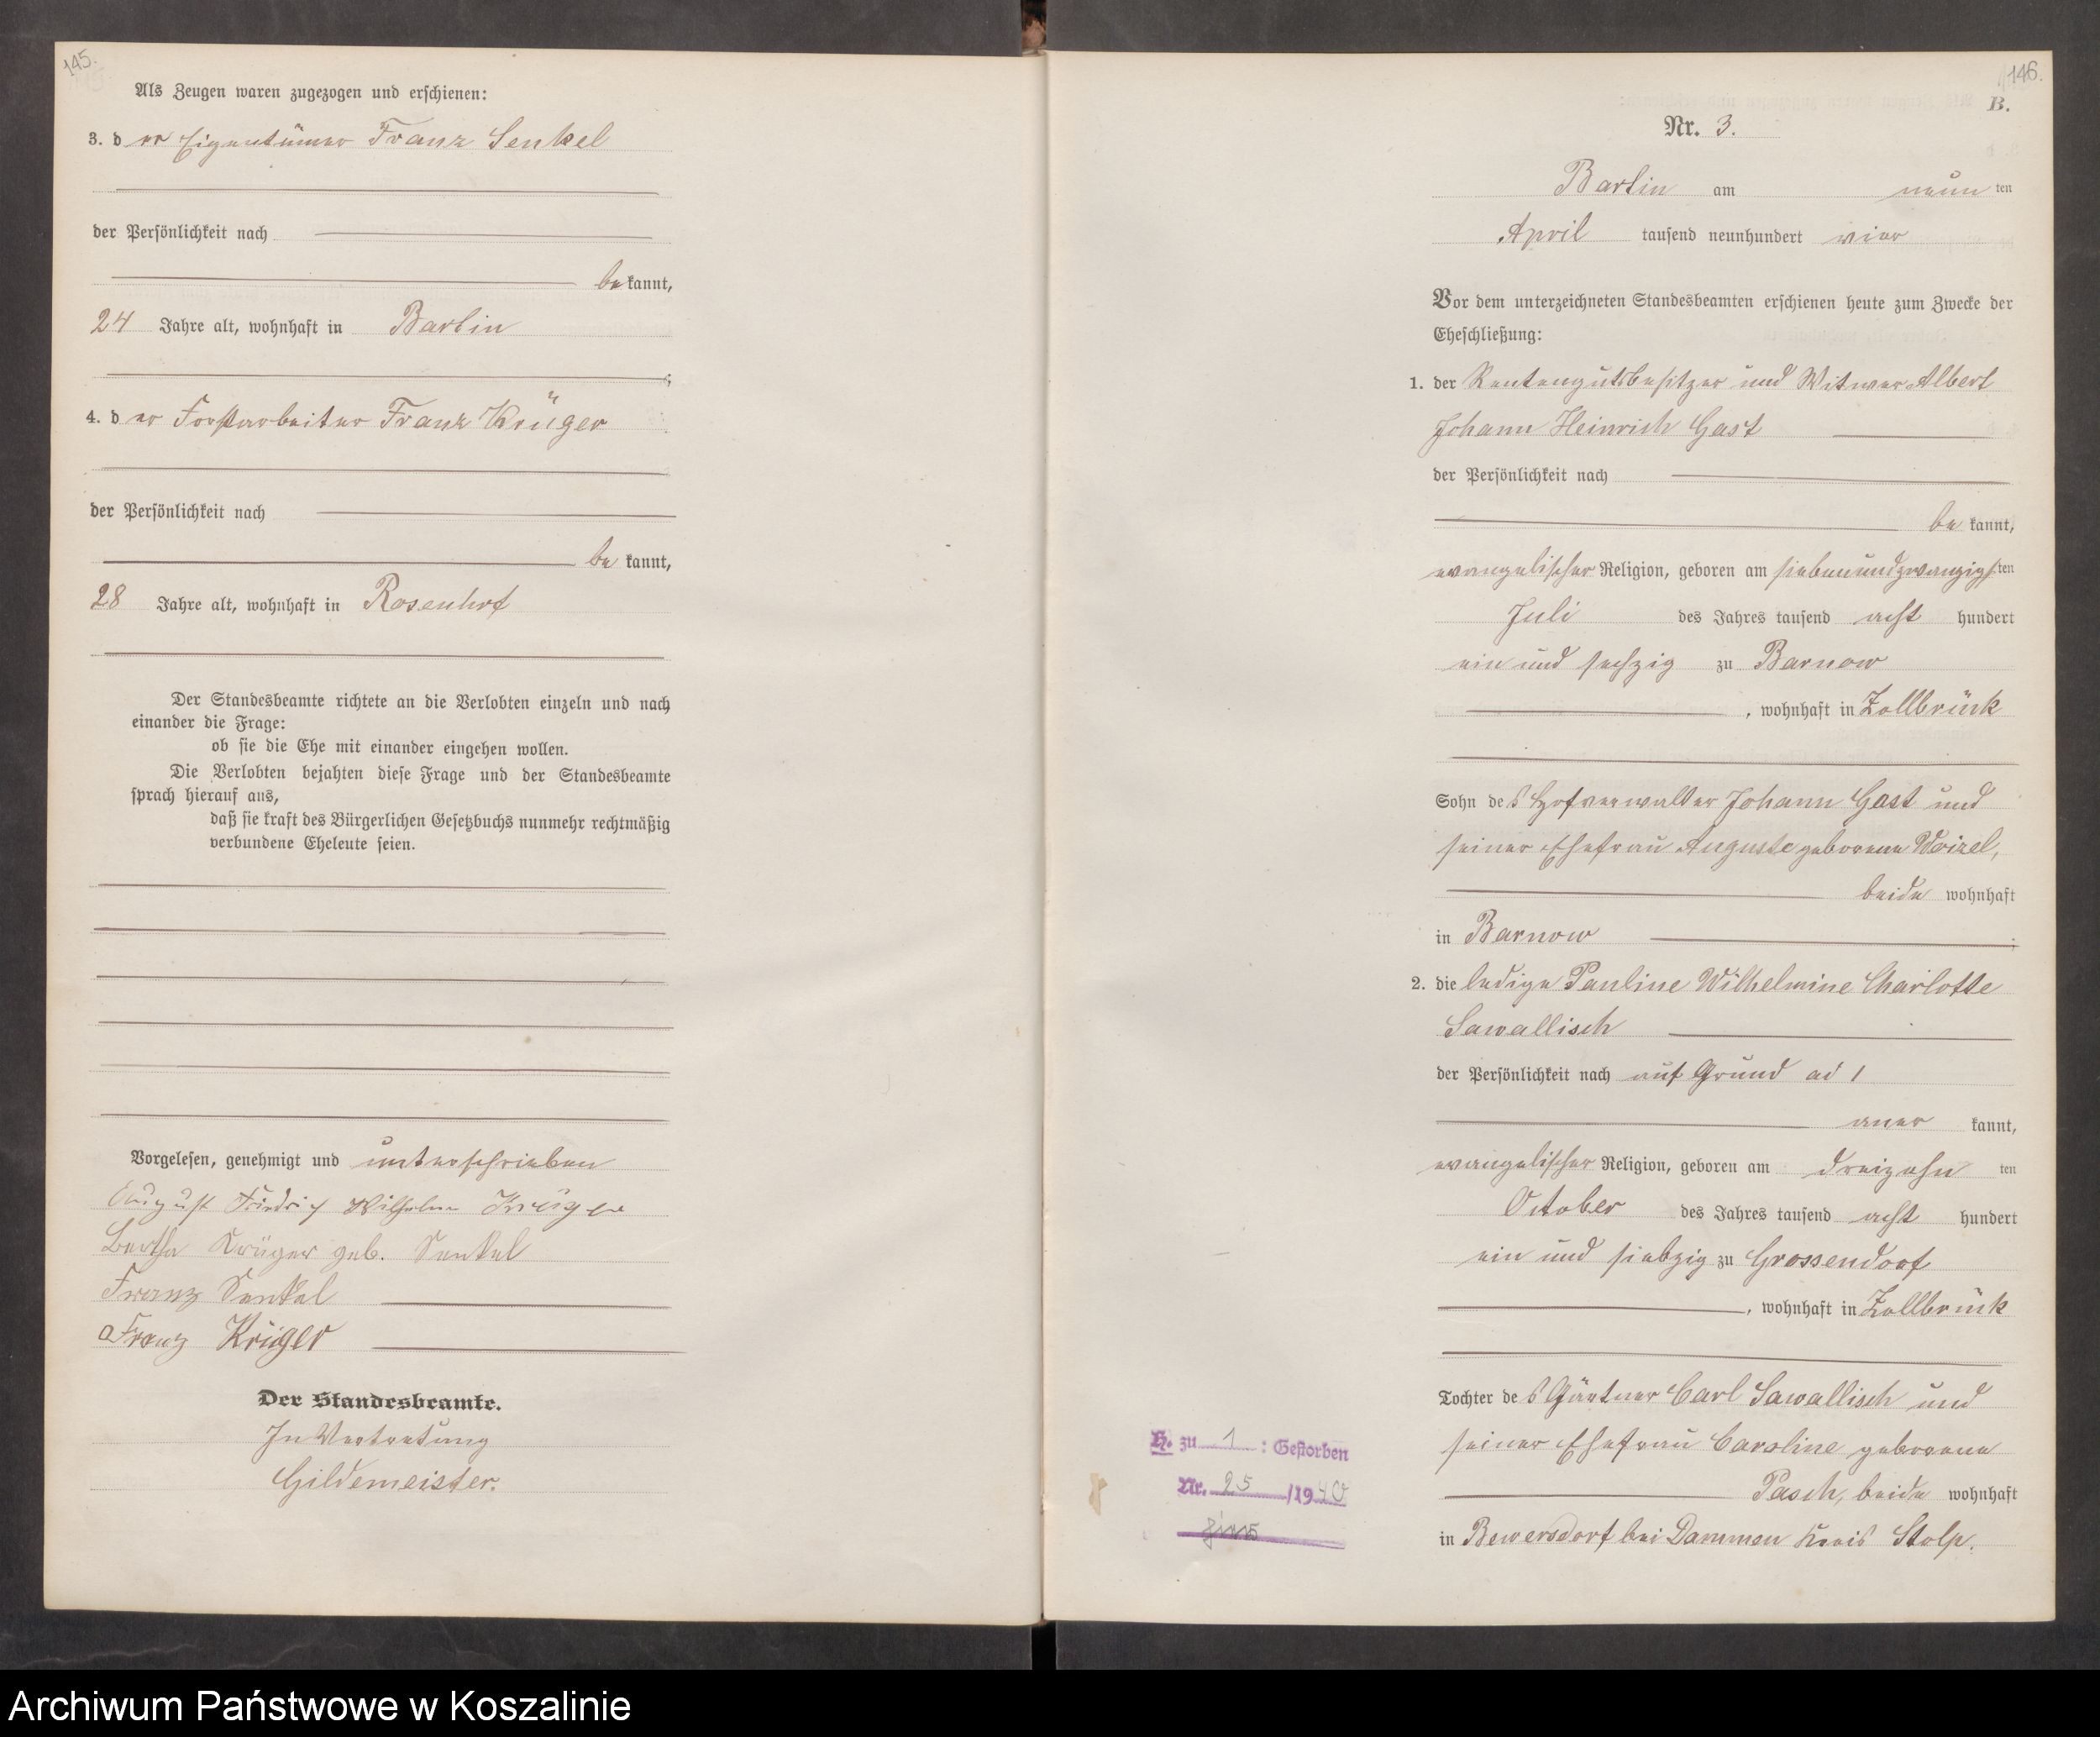 145.
Als Zeugen waren zugezogen und erschienen:
3. d er Eigentümer Franz Senkel
der Persönlichkeit nach
be kannt,
24 Jahre alt, wohnhaft in Bartin
4. d er Forstarbeiter Franz Krüger
der Persönlichkeit nach
be kannt,
28 Jahre alt, wohnhaft in Rosenhof
Der Standesbeamte richtete an die Verlobten einzeln und nach
einander die Frage:
ob sie die Ehe mit einander eingehen wollen.
Die Verlobten bejahten diese Frage und der Standesbeamte
sprach hierauf aus,
daß sie kraft des Bürgerlichen Gesetzbuchs nunmehr rechtmäßig
verbundene Eheleute seien.
Vorgelesen, genehmigt und unterschrieben
August Friedrich Wilhelm Krüger
Bertha Krüger geb. Senkel
Franz Senkel
Franz Krüger
Der Standesbeamte.
In Vertretung
Gildemeister.
146.
B.
Nr. 3.
Bartin am neun ten
April tausend neunhundert vier
Vor dem unterzeichneten Standesbeamten erschienen heute zum Zwecke der
Eheschließung:
1. der Rentengutsbesitzer und Witwer Albert
Johann Heinrich Gast
der Persönlichkeit nach
be kannt,
evangelischer Religion, geboren am siebenundzwanzigsten
Juli des Jahres tausend acht hundert
ein und sechzig zu Barnow
, wohnhaft in Zollbrück
Sohn des Hofverwalter Johann Gast und
seiner Ehefrau Auguste geborene Woizel,
beide wohnhaft
in Barnow ;
2. die ledige Pauline Wilhelmine Charlotte
Sawallisch
der Persönlichkeit nach auf Grund ad 1
aner kannt,
evangelischer Religion, geboren am dreizehn ten
October des Jahres tausend acht hundert
ein und siebzig zu Grossendorf
, wohnhaft in Zollbrück
Tochter des Gärtner Carl Sawallisch und
seiner Ehefrau Caroline geborene
Pasch, beide wohnhaft
in Bewersdorf bei Dammen Kreis Stolp.
H. zu 1 : Gestorben
Nr. 25 /1940
Archiwum Państwowe w Koszalinie